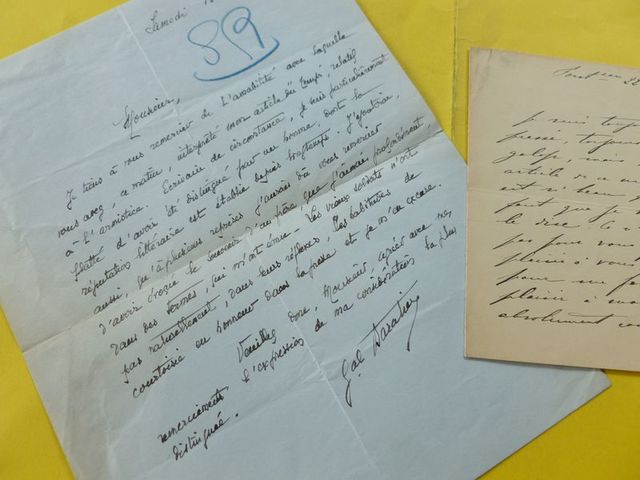 Samedi
89
Monsieur,
Je tiens à vous remercier de l'amabilité avec laquelle
vous avez, ce matin, interprété mon article du Temps, relatif
à l'armistice. Ecrivain de circonstance, je suis particulièrement
flatté d'avoir été distingué par un homme, dont la
réputation littéraire est établie depuis longtemps. J'ajouterai,
aussi, qu'à plusieurs reprises j'aurais dû vous remercier
d'avoir évoqué le souvenir d'un père, que j'aimais profondément,
dans des termes, qui m'ont ému. Les vieux soldats n'ont
pas naturellement, dans leurs réflexes, les habitudes de
courtoisie en honneur dans la presse et je m'en excuse.
Veuillez donc, Monsieur, agréer avec mes
remerciements l'expression de ma considération la plus
distinguée.
Gal
je suis toujours
pressé, toujours
galop, mais
article de ce
est si beau
fait que je
le dise.
pas pour vous
plaisir à vous
pour me
plaisir à
absolument